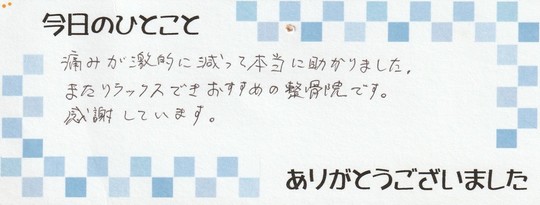 今日のひとこと
痛みが激的に減って本当に助かりました。
またリラックスできおすすめの整骨院です。
感謝しています。
ありがとうございました